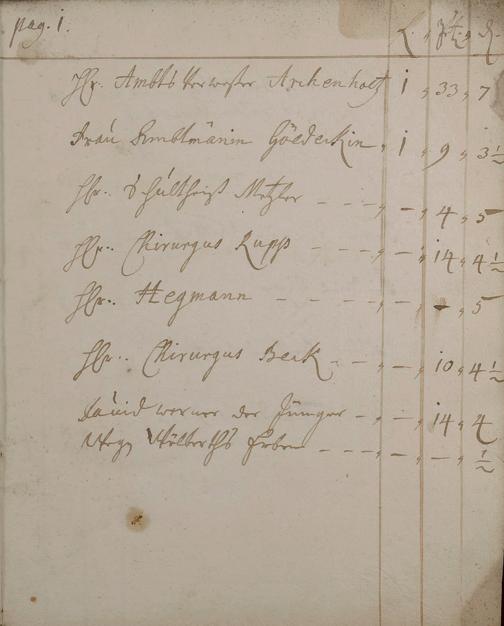 pag. 1.
Hr. Ambts Verweser Arckenholtz 1 , 33 , 7
Frau Ambtmänin Gödeckin , 1 , 9 , 3 1/2
Hr. Schultheiß Metzler - - - , - , 4 , 5
Hr. Chirurgus Rupp - - - , - , 14 , 4 1/2
Hr. Hegmann - - - - , - , - , 5
Hr. Chirurgus Beck - - , - , 10 , 4 1/2
David werner der Jünger - , - , 14 , 4
Erben - - - , - , - , 1/2